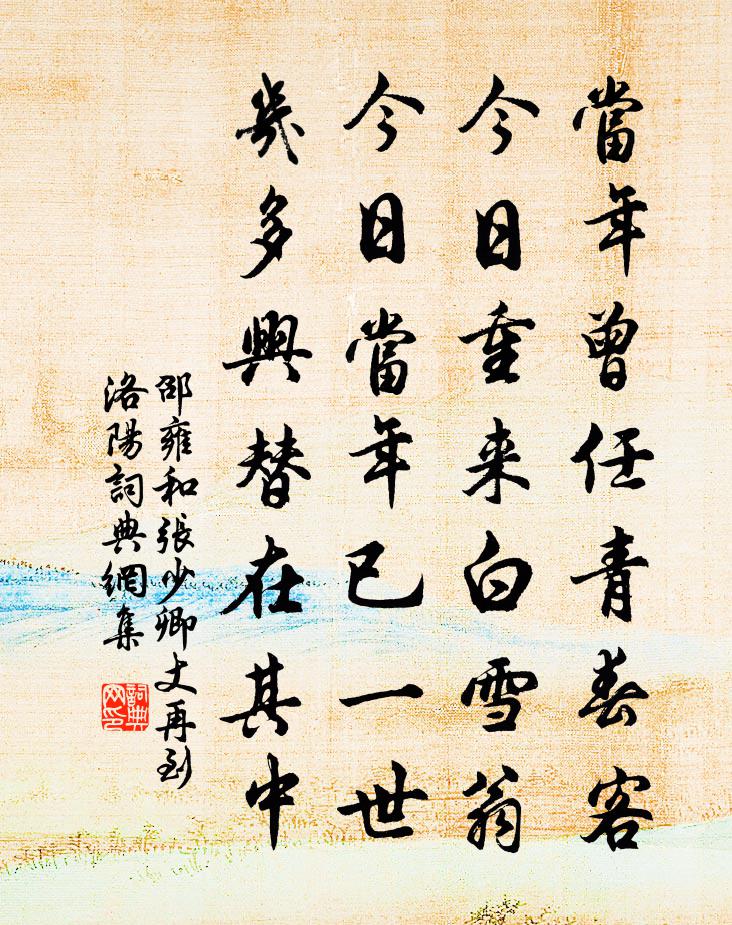 當年曾任青春客
今日重来白雪翁
今日當年已一世
幾多興替在其中
邵雍和張少卿丈再到
洛陽詞典網集
詞典
网印